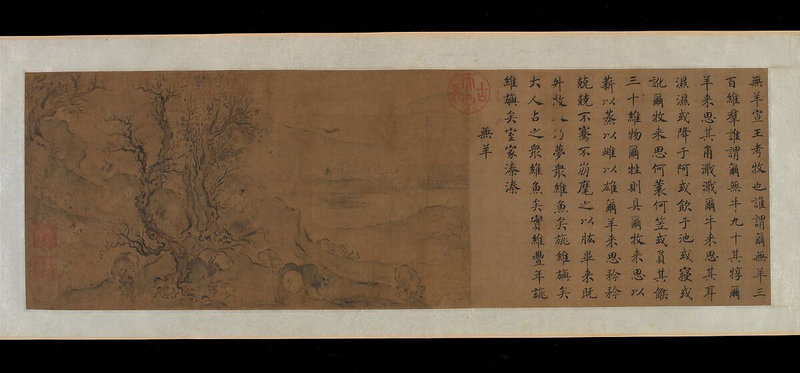 無羊宣王考牧也誰謂爾無羊三
百維羣誰謂爾無牛九十其犉爾
羊来思其角濈濈爾牛来思其耳
濕濕或降于阿或飲于池或寢或
訛爾牧来思何蓑何笠或負其餱
三十維物爾牲則具爾牧来思以
薪以蒸以雌以雄爾羊来思矜矜
兢兢不騫不崩麾之以肱畢来既
升牧乃夢衆維魚矣旐維旟矣
大人占之衆維魚矣實維豐年旐
維旟矣室家溱溱
無羊